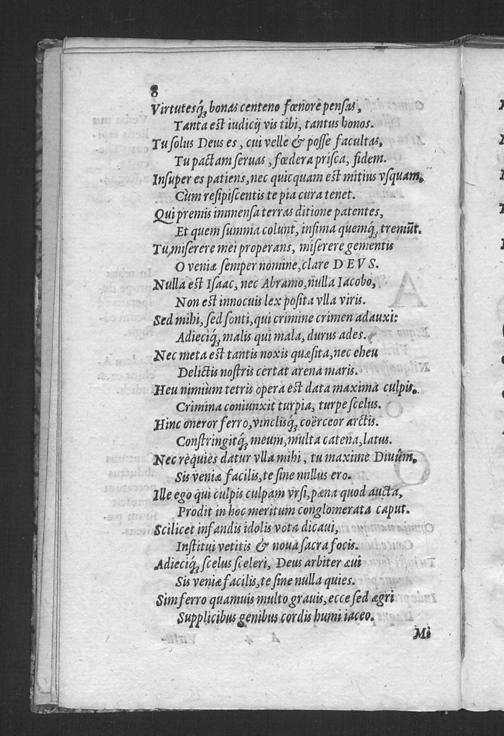 8
Virtutesq́;, bonas centeno fœnore pensas,
Tanta est iudicij vis tibi, tantus honos.
Tu solus Deus es, cui velle & posse facultas,
Tu pactam seruas, fœdera prisca, fidem.
Insuper es patiens, nec quicquam est mitius vsquam,
Cùm resipiscentis te pia cura tenet.
Qui premis immensa terras ditione patentes,
Et quem summa colunt, infima quemq́;, tremūt.
Tu, miserere mei properans, miserere gementis
O veniæ semper nomine, clare DEVS.
Nulla est Isaac, nec Abramo, nulla Iacobo,
Non est innocuis lex posita vlla viris.
Sed mihi, sed sonti, qui crimine crimen adauxi:
Adiecíq́;, malis qui mala, durus ades.
Nec meta est tantis noxis quæsita, nec eheu
Delictis nostris certat arena maris.
Heu nimium tetris opera est data maxima culpis,
Crimina coniunxit turpia, turpe scelus.
Hinc oneror ferro, vinclisq́;, coërceor arctis.
Constringitq́;, meum, multa catena, latus.
Nec rèquies datur vlla mihi, tu maxime Diuûm,
Sis veniæ facilis, te sine nullus ero.
Ille ego qui culpis culpam vrsi, pæna quod aucta,
Prodit in hoc meritum conglomerata caput.
Scilicet infandis idolis vota dicaui,
Institui vetitis & noua sacra focis.
Adiecíq́;, scelus sceleri, Deus arbiter æui
Sis veniæ facilis, te sine nulla quies.
Sim ferro quamuis multo grauis, ecce sed ægri
Supplicibus genibus cordis humi iaceo.
Mi